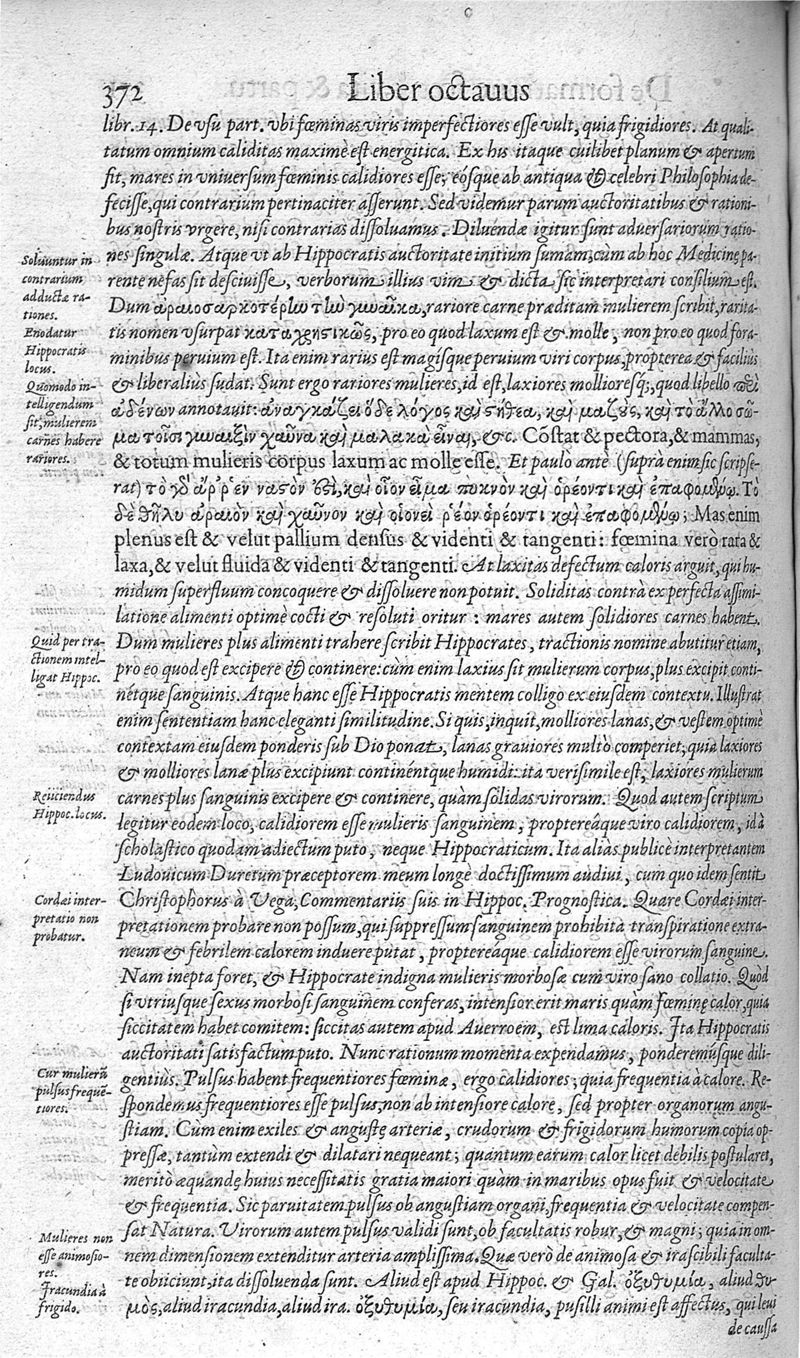 372 Liber octauus
libr. 14. De vsu part. vbi fœminas viris imperfectiores esse vult, quia frigidiores. At quali-
tatum omnium caliditas maximè est energitica. Ex his itaque cuilibet planum & apertum
fit, mares in vniuersum fœminis calidiores esse, eósque ab antiqua & celebri Philosophia de-
fecisse, qui contrarium pertinaciter asserunt. Sed videmur parum auctoritatibus & rationi-
bus nostris vrgere, nisi contrarias dissoluamus. Diluendæ igitur sunt aduersariorum ratio-
Soluuntur in
contrarium
adductæ ra-
tiones.
nes singulæ. Atque vt ab Hippocratis auctoritate initium sumam, cùm ab hoc Medicinę pa-
rente nefas sit desciuisse, verborum illius vim & dicta sic interpretari consilium est.
Dum ἀραιοσαρκοτέρην τὴν γυναῖκα, rariore carne præditam mulierem scribit, rarita-
Enodatur
Hippocratis
locus.
tis nomen vsurpat καταχρηστικῶς, pro eo quod laxum est & molle, non pro eo quod fora-
minibus peruium est. Ita enim rarius est magísque peruium viri corpus, propterea & facilius
Quomodo in-
telligendum
sit, mulierem
carnes habere
rariores.
& liberaliùs sudat. Sunt ergo rariores mulieres, id est, laxiores mollioresq;, quod libello περὶ
ἀδένων annotauit: ἀναγκάζει ὅδε λόγος καὶ στήθεα, καὶ μαζοὺς, καὶ τὸ ἄλλο σῶ-
μα τοῖσι γυναιξὶν χαῦνα καὶ μαλακὰ εἶναι, &c. Cõstat & pectora, & mammas,
& totum mulieris corpus laxum ac molle esse. Et paulo antè (suprà enim sic scripse-
rat) τὸ γὸ ἄῤῥεν ναστὸν ἐστὶ, καὶ οἷον εἷμα πυκνὸν καὶ ὁρέοντι καὶ ἐπαφομένῳ. Τὸ
δὲ θῆλυ ἀραιὸν καὶ χαῦνον καὶ οἱονεὶ ῥέον ὁρέοντι καὶ ἐπαφομένῳ; Mas enim
plenus est & velut pallium densus & videnti & tangenti: fœmina verò rara &
laxa, & velut fluida & videnti & tangenti. At laxitas defectum caloris arguit, qui hu-
midum superfluum concoquere & dissoluere non potuit. Soliditas contrà ex perfecta assimi-
latione alimenti optimè cocti & resoluti oritur: mares autem solidiores carnes habent.
Quid per tra-
ctionem intel-
ligat Hippoc.
Dum mulieres plus alimenti trahere scribit Hippocrates, tractionis nomine abutitur etiam,
pro eo quod est excipere & continere: cùm enim laxius sit mulierum corpus, plus excipit conti-
nétque sanguinis. Atque hanc esse Hippocratis mentem colligo ex eiusdem contextu. Illustrat
enim sententiam hanc eleganti similitudine. Si quis, inquit, molliores lanas, & vestem optimè
contextam eiusdem ponderis sub Dio ponat, lanas grauiores multò comperiet, quia laxiores
& molliores lanæ plus excipiunt continéntque humidi: ita verisimile est, laxiores mulierum
Reiiciendus
Hippoc. locus.
carnes plus sanguinis excipere & continere, quàm solidas virorum. Quod autem scriptum
legitur eodem loco, calidiorem esse mulieris sanguinem, proptereáque viro calidiorem, id à
scholastico quodam adiectum puto, neque Hippocraticum. Ita aliàs publicè interpretantem
Ludouicum Duretum præceptorem meum longè doctissimum audiui, cum quo idem sentit
Cordæi inter-
pretatio non
probatur.
Christophorus à Vega, Commentariis suis in Hippoc. Prognostica. Quare Cordæi inter-
pretationem probare non possum, qui suppressum sanguinem prohibita transpiratione extra-
neum & febrilem calorem induere putat, proptereáque calidiorem esse virorum sanguine.
Nam inepta foret, & Hippocrate indigna mulieris morbosæ cum viro sano collatio. Quòd
si vtriusque sexus morbosi sanguinem conferas, intensior erit maris quàm fœminę calor, quia
siccitatem habet comitem: siccitas autem apud Auerroem, est lima caloris. Ita Hippocratis
auctoritati satisfactum puto. Nunc rationum momenta expendamus, ponderemúsque dili-
Cur mulierũ
pulsus frequẽ-
tiores.
gentiùs. Pulsus habent frequentiores fœminæ, ergo calidiores; quia frequentia à calore. Re-
spondemus frequentiores esse pulsus, non ab intensiore calore, sed propter organorum angu-
stiam. Cùm enim exiles & angustę arteriæ, crudorum & frigidorum humorum copia op-
pressæ, tantùm extendi & dilatari nequeant; quantum earum calor licet debilis postularet,
meritò æquandę huius necessitatis gratia maiori quàm in maribus opus fuit & velocitate
& frequentia. Sic paruitatem pulsus ob angustiam organi, frequentia & velocitate compen-
sat Natura. Virorum autem pulsus validi sunt, ob facultatis robur, & magni; quia in om-
Mulieres non
esse animosio-
res.
nem dimensionem extenditur arteria amplissima. Quæ verò de animosa & irascibili faculta-
te obiiciunt, ita dissoluenda sunt. Aliud est apud Hippoc. & Gal. ὀξυθυμία, aliud θυ-
Iracundia à
frigido.
μὸς, aliud iracundia, aliud ira. ὀξυθυμία, seu iracundia, pusilli animi est affectus, qui leui
de caussa